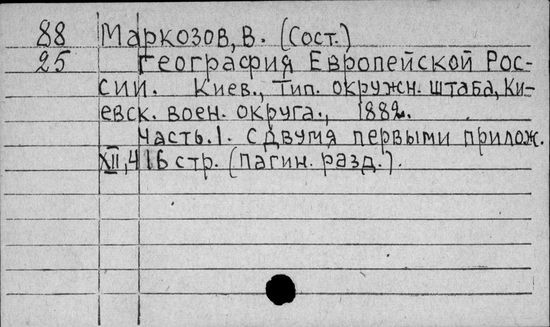 88 Маркозов, В. (Сост.)
25 География Европейской Рос-
сии. Киев., Тип. окружн. штаба, Ки-
евск. воен. округа., 1882.
Часть. 1. С двумя первыми прилож.
XII, 416 стр. (пагин. разд.).